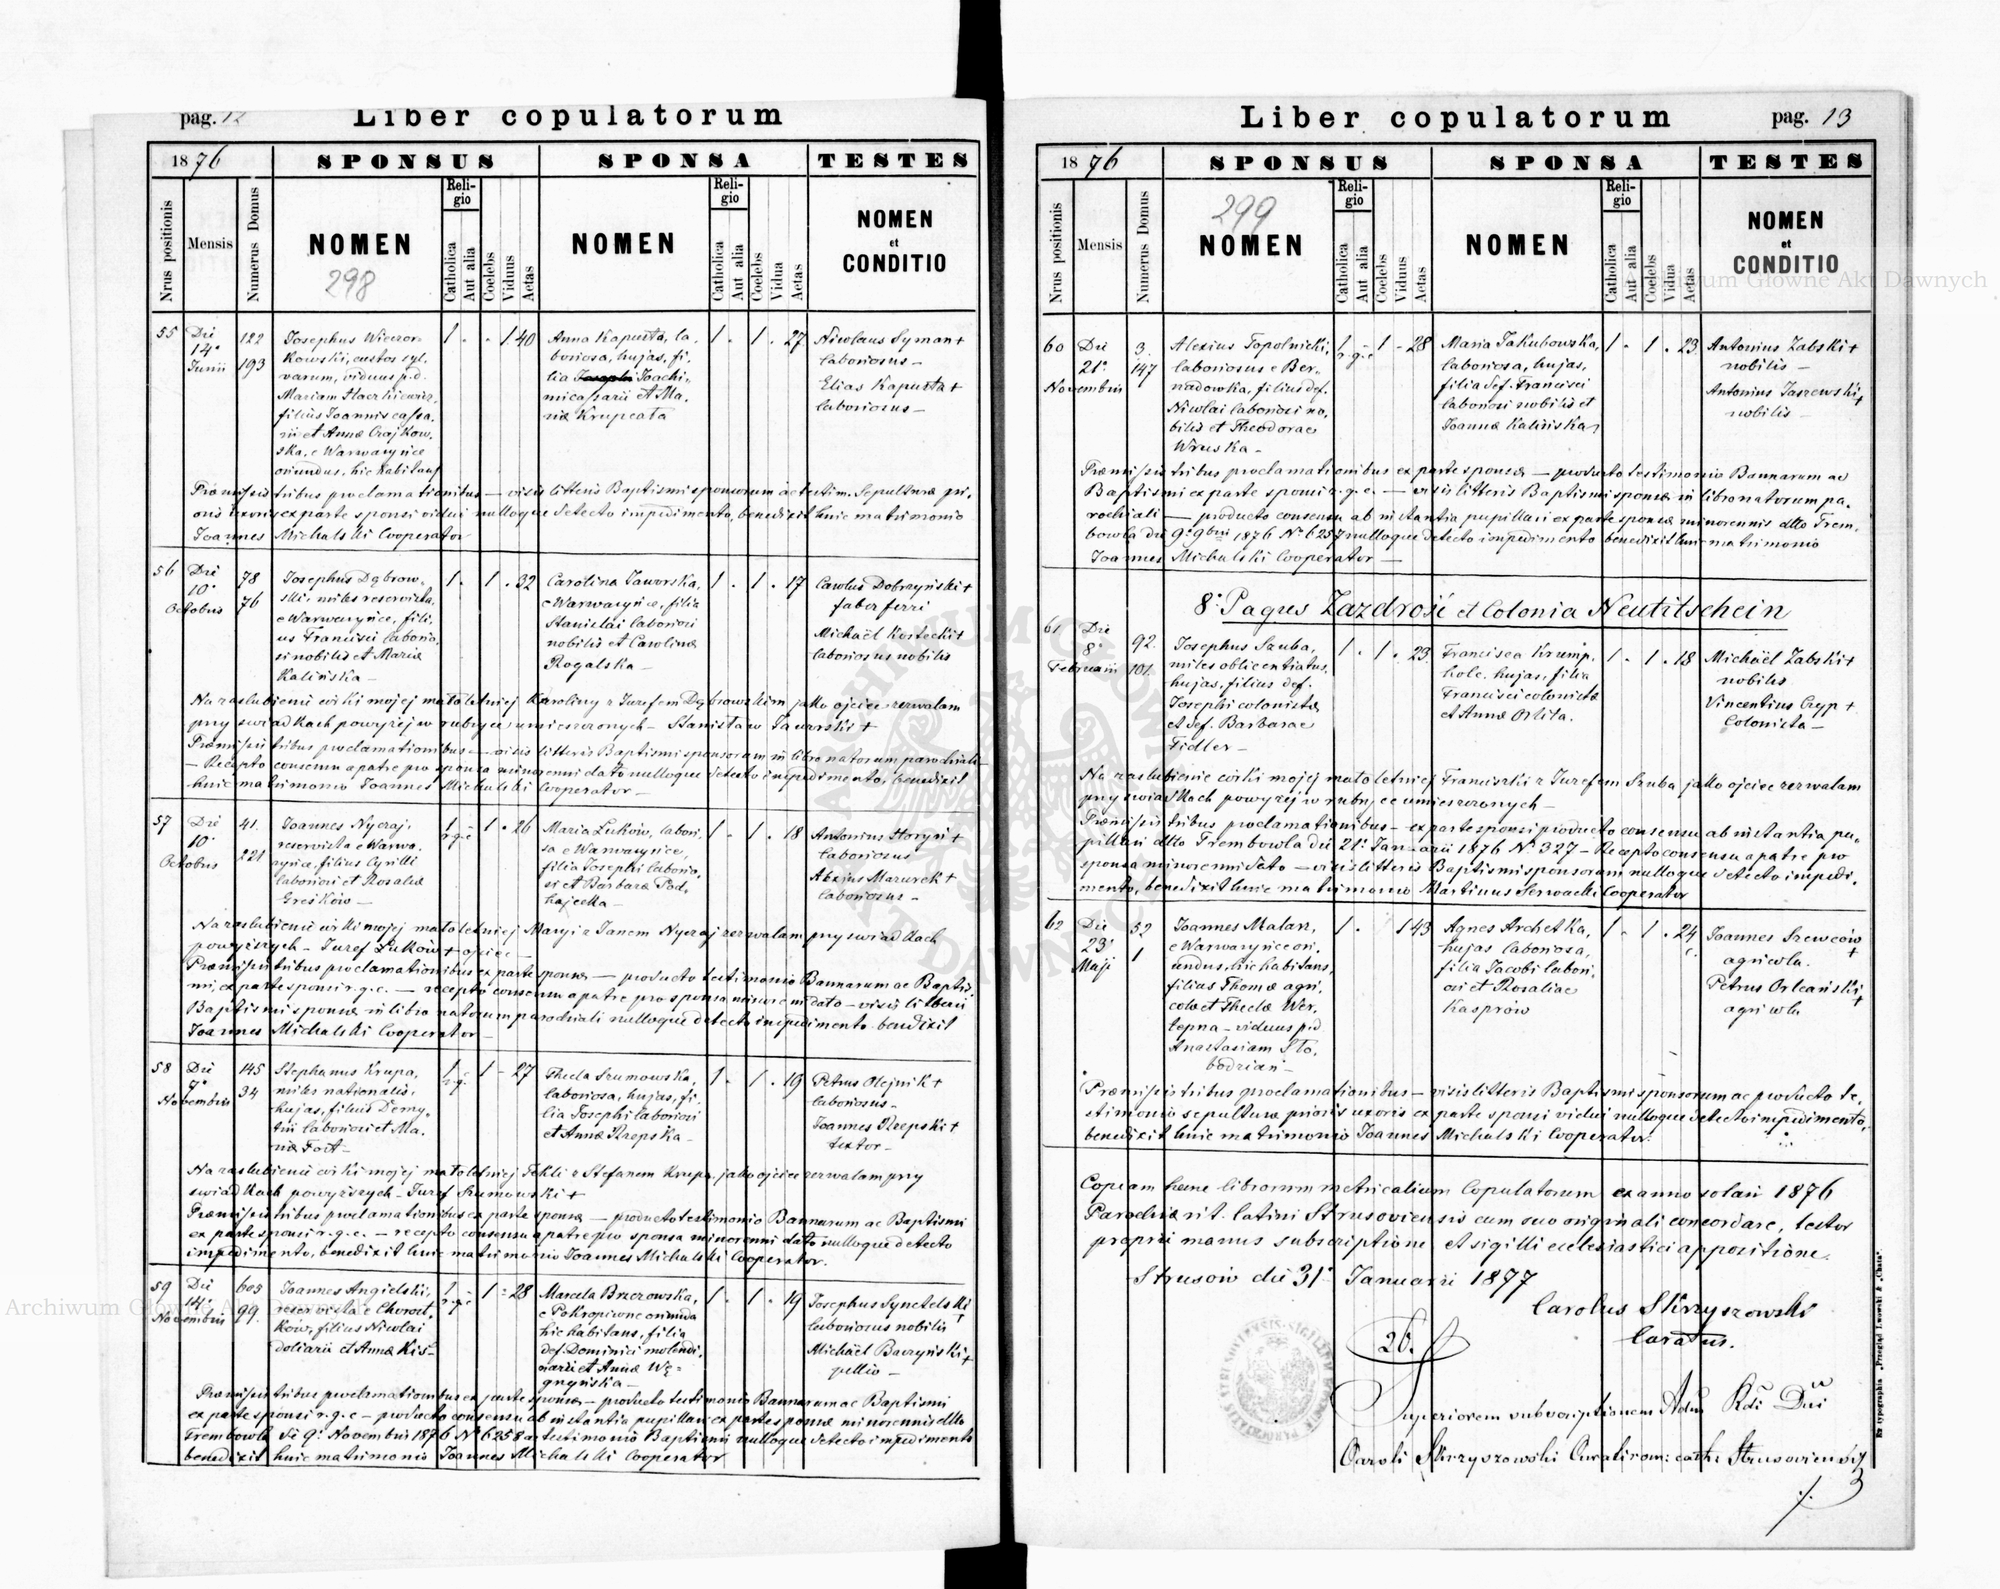 pag. 12
Liber copulatorum
1876
SPONSUS
SPONSA
TESTES
Nrus positionis
Mensis
Numerus Domus
NOMEN
298
Religio
Catholica
Aut alia
Coelebs
Viduus
Aetas
NOMEN
Religio
Catholica
Aut alia
Coelebs
Vidua
Aetas
NOMEN
et
CONDITIO
55
Die
14ª
Junii
122
193
Josephus Wieczor-
kowski, custos syl-
varum, viduus p.d.
Mariam
filius Joannis cassa-
rii et Annæ Czajkow-
ska, e Warwaryńce
oriundus, hic habitans
1 . . 1 40
Anna Kapusta, la-
boriosa, hujas, fi-
lia Joachi-
mi cassarii et Ma-
riæ Krupcata
1 . 1 . 27
Nicolaus Syman +
laboriosus —
Elias Kapusta +
laboriosus —
Præmissis tribus proclamationibus — visis litteris Baptismi sponsorum ac testim. Sepulturæ pri-
oris uxoris ex parte sponsi vidui nulloque detecto impedimento, benedixit huic matrimonio
Joannes Michalski Cooperator
56
Die
10ª
Octobris
78
76
Josephus Dąbrow-
ski, miles reservista,
e Warwaryńce, fili-
us Francisci laborio-
si nobilis et Mariæ
Kalińska —
1 . 1 . 32
Carolina Jaworska,
e Warwaryńce, filia
Stanislai laboriosi
nobilis et Carolinæ
Rogalska —
1 . 1 . 17
Carolus Dobrzyński +
faber ferri
Michaël Kostecki +
laboriosus nobilis
Na zaslubienie córki mojej małoletniej Karoliny z Jozefem Dąbrowskim jako ojciec zezwalam
przy swiadkach powyżej w rubryce umieszczonych — Stanisław Jaworski +
Præmissis tribus proclamationibus — visis litteris Baptismi sponsorum in libro natorum parochiali
— Recepto consensu a patre pro sponsa minorenni dato nulloque detecto impedimento, benedixit
huic matrimonio Joannes Michalski Cooperator —
57
Die
10ª
Octobris
41.
221
Joannes Nyczaj,
reservista e Warwa-
ryńce, filius Cyrilli
laboriosi et Rosaliæ
Greskow —
1 r.g.c. 1 . 26
Maria Luków, laborio-
sa e Warwaryńce,
filia Josephi laborio-
si et Barbaræ Pod-
hajecka —
1 . 1 . 18
Antonius Horyń +
laboriosus
Alexius Mazurek +
laboriosus —
Na zaslubienie córki mojej małoletniej Maryi z Janem Nyczaj zezwalam przy swiadkach
powyższych — Jozef Luków + ojciec —
Præmissis tribus proclamationibus ex parte sponsæ — producto testimonio Bannarum ac Baptis-
mi, ex parte sponsi r.g.c. — recepto consensu a patre pro sponsa minorenni dato — visis litteris
Baptismi sponsæ in libro natorum parochiali nulloque detecto impedimento benedixit
Joannes Michalski Cooperator —
58
Die
7ª
Novembris
145
34
Stephanus Krupa,
miles nationalis,
hujas, filius Demy-
tri laboriosi et Ma-
riæ Fort —
1 r.g. 1 — 27
Thecla Szumowska,
laboriosa, hujas, fi-
lia Josephi laboriosi
et Annæ Rzepska —
1 . 1 . 19
Petrus Olejnik +
laboriosus —
Joannes Rzepski +
textor —
Na zaslubienie córki mojej małoletniej Tekli z Stefanem Krupa, jako ojciec zezwalam przy
swiadkach powyższych — Jozef Szumowski +
Præmissis tribus proclamationibus ex parte sponsæ — producto testimonio Bannarum ac Baptismi
ex parte sponsi r.g.c. — recepto consensu a patre pro sponsa minorenni dato nulloque detecto
impedimento, benedixit huic matrimonio Joannes Michalski Cooperator.
59
Die
14ª
Novembris
603
99.
Joannes Angielski,
reservista e Chorost-
ków, filius Nicolai
doliarii et Annæ Kis-
1 r.g.c. 1 — 28
Marcela Brzezowska,
e Pokropiwne oriunda
hic habitans, filia
def. Dominici molendi-
narii et Annæ Wę-
grzyńska —
1 . 1 . 19
Josephus Synetelski +
laboriosus nobilis
Michaël Baczyński +
pellio —
Præmissis tribus proclamationibus ex parte sponsæ — producto testimonio Bannarum ac Baptismi
ex parte sponsi r.g.c — producto consensu ab instantia pupillari ex parte sponsæ minorennis ddto
Trembowla di 9ª Novembris 1876 Nº 6258 ac testimonio Baptismi nulloque detecto impedimento
benedixit huic matrimonio Joannes Michalski Cooperator
Liber copulatorum
pag. 13
1876
SPONSUS
SPONSA
TESTES
Nrus positionis
Mensis
Numerus Domus
299
NOMEN
Religio
Catholica
Aut alia
Coelebs
Viduus
Aetas
NOMEN
Religio
Catholica
Aut alia
Coelebs
Vidua
Aetas
NOMEN
et
CONDITIO
60
Die
21ª
Novembris
3.
147
Alexius Topolnicki,
laboriosus e Ber-
nadowka, filius def.
Nicolai laboriosi no-
bilis et Theodoræ
Wruska —
1 r.g.c 1 — 28
Maria Jakubowska,
laboriosa, hujas,
filia def. Francisci
laboriosi nobilis et
Joannæ Kalińska
1 . 1 . 23
Antonius Zabski +
nobilis —
Antonius Jaszewski +
nobilis —
Præmissis tribus proclamationibus ex parte sponsæ — producto testimonio Bannarum ac
Baptismi ex parte sponsi r.g.c. — visis litteris Baptismi sponsæ in libro natorum pa-
rochiali — producto consensu ab instantia pupillari ex parte sponsæ minorennis ddto Trem-
bowla di 9ª 9bris 1876 Nº 6257 nulloque detecto impedimento benedixit huic matrimonio
Joannes Michalski Cooperator —
8º Pagus Zazdrość et Colonia Neutitschein
61
Die
8ª
Februarii
92.
101.
Josephus Szuba,
miles oblicentiatus,
hujas, filius def.
Josephi colonistæ
et def. Barbaræ
Fidler —
1 . 1 . 23
Francisca Krump-
holc, hujas, filia
Francisci colonistæ
et Annæ Orlita.
1 . 1 . 18
Michaël Zabski +
nobilis
Vincentius Czyp +
Colonista —
Na zaslubienie córki mojej małoletniej Franciszki z Jozefem Szuba jako ojciec zezwalam
przy swiadkach powyżej w rubryce umieszczonych —
Præmissis tribus proclamationibus — ex parte sponsi producto consensu ab instantia pu-
pillari ddto Trembowla di 21ª Januarii 1876 Nº 327 — Recepto consensu a patre pro
sponsa minorenni dato — visis litteris Baptismi sponsorum nulloque detecto impedi-
mento, benedixit huic matrimonio Martinus Serwacki Cooperator
62
Die
23ª
Maji
32
1
Joannes Malarz,
e Warwaryńce ori-
undus, hic habitans,
filius Thomæ agri-
colæ et Theclæ Wer-
tepna — viduus p.d.
Anastasiam Sło-
bodzian —
1 . 1 43
Agnes Archetka,
hujas laboriosa,
filia Jacobi labori-
osi et Rosaliæ
Kasprów
1 . 1 . 24
Joannes Szewców +
agricola.
Petrus Orleański +
agricola
Præmissis tribus proclamationibus — visis litteris Baptismi sponsorum ac producto te-
stimonio sepulturæ prioris uxoris ex parte sponsi vidui nulloque detecto impedimento,
benedixit huic matrimonio Joannes Michalski Cooperator.
Copiam hanc librorum metricalium Copulatorum ex anno solari 1876
Parochiæ rit. latini Strusoviensis cum suo originali concordare, testor
propriæ manus subscriptione et sigilli ecclesiastici appositione.
Strusów die 31ª Januarii 1877
Carolus Skrzyszowski
Curatus.
26.
Superiorem subscriptionem Adm Rdi Dni
Caroli Skrzyszowski Curati rom: cath: Strusoviensis
Ex typographia „Przegląd Lwowski &
Archiwum Główne Akt Dawnych
Archiwum Główne Akt Dawnych
ARCHIWUM GŁÓWNE
AKT DAWNYCH